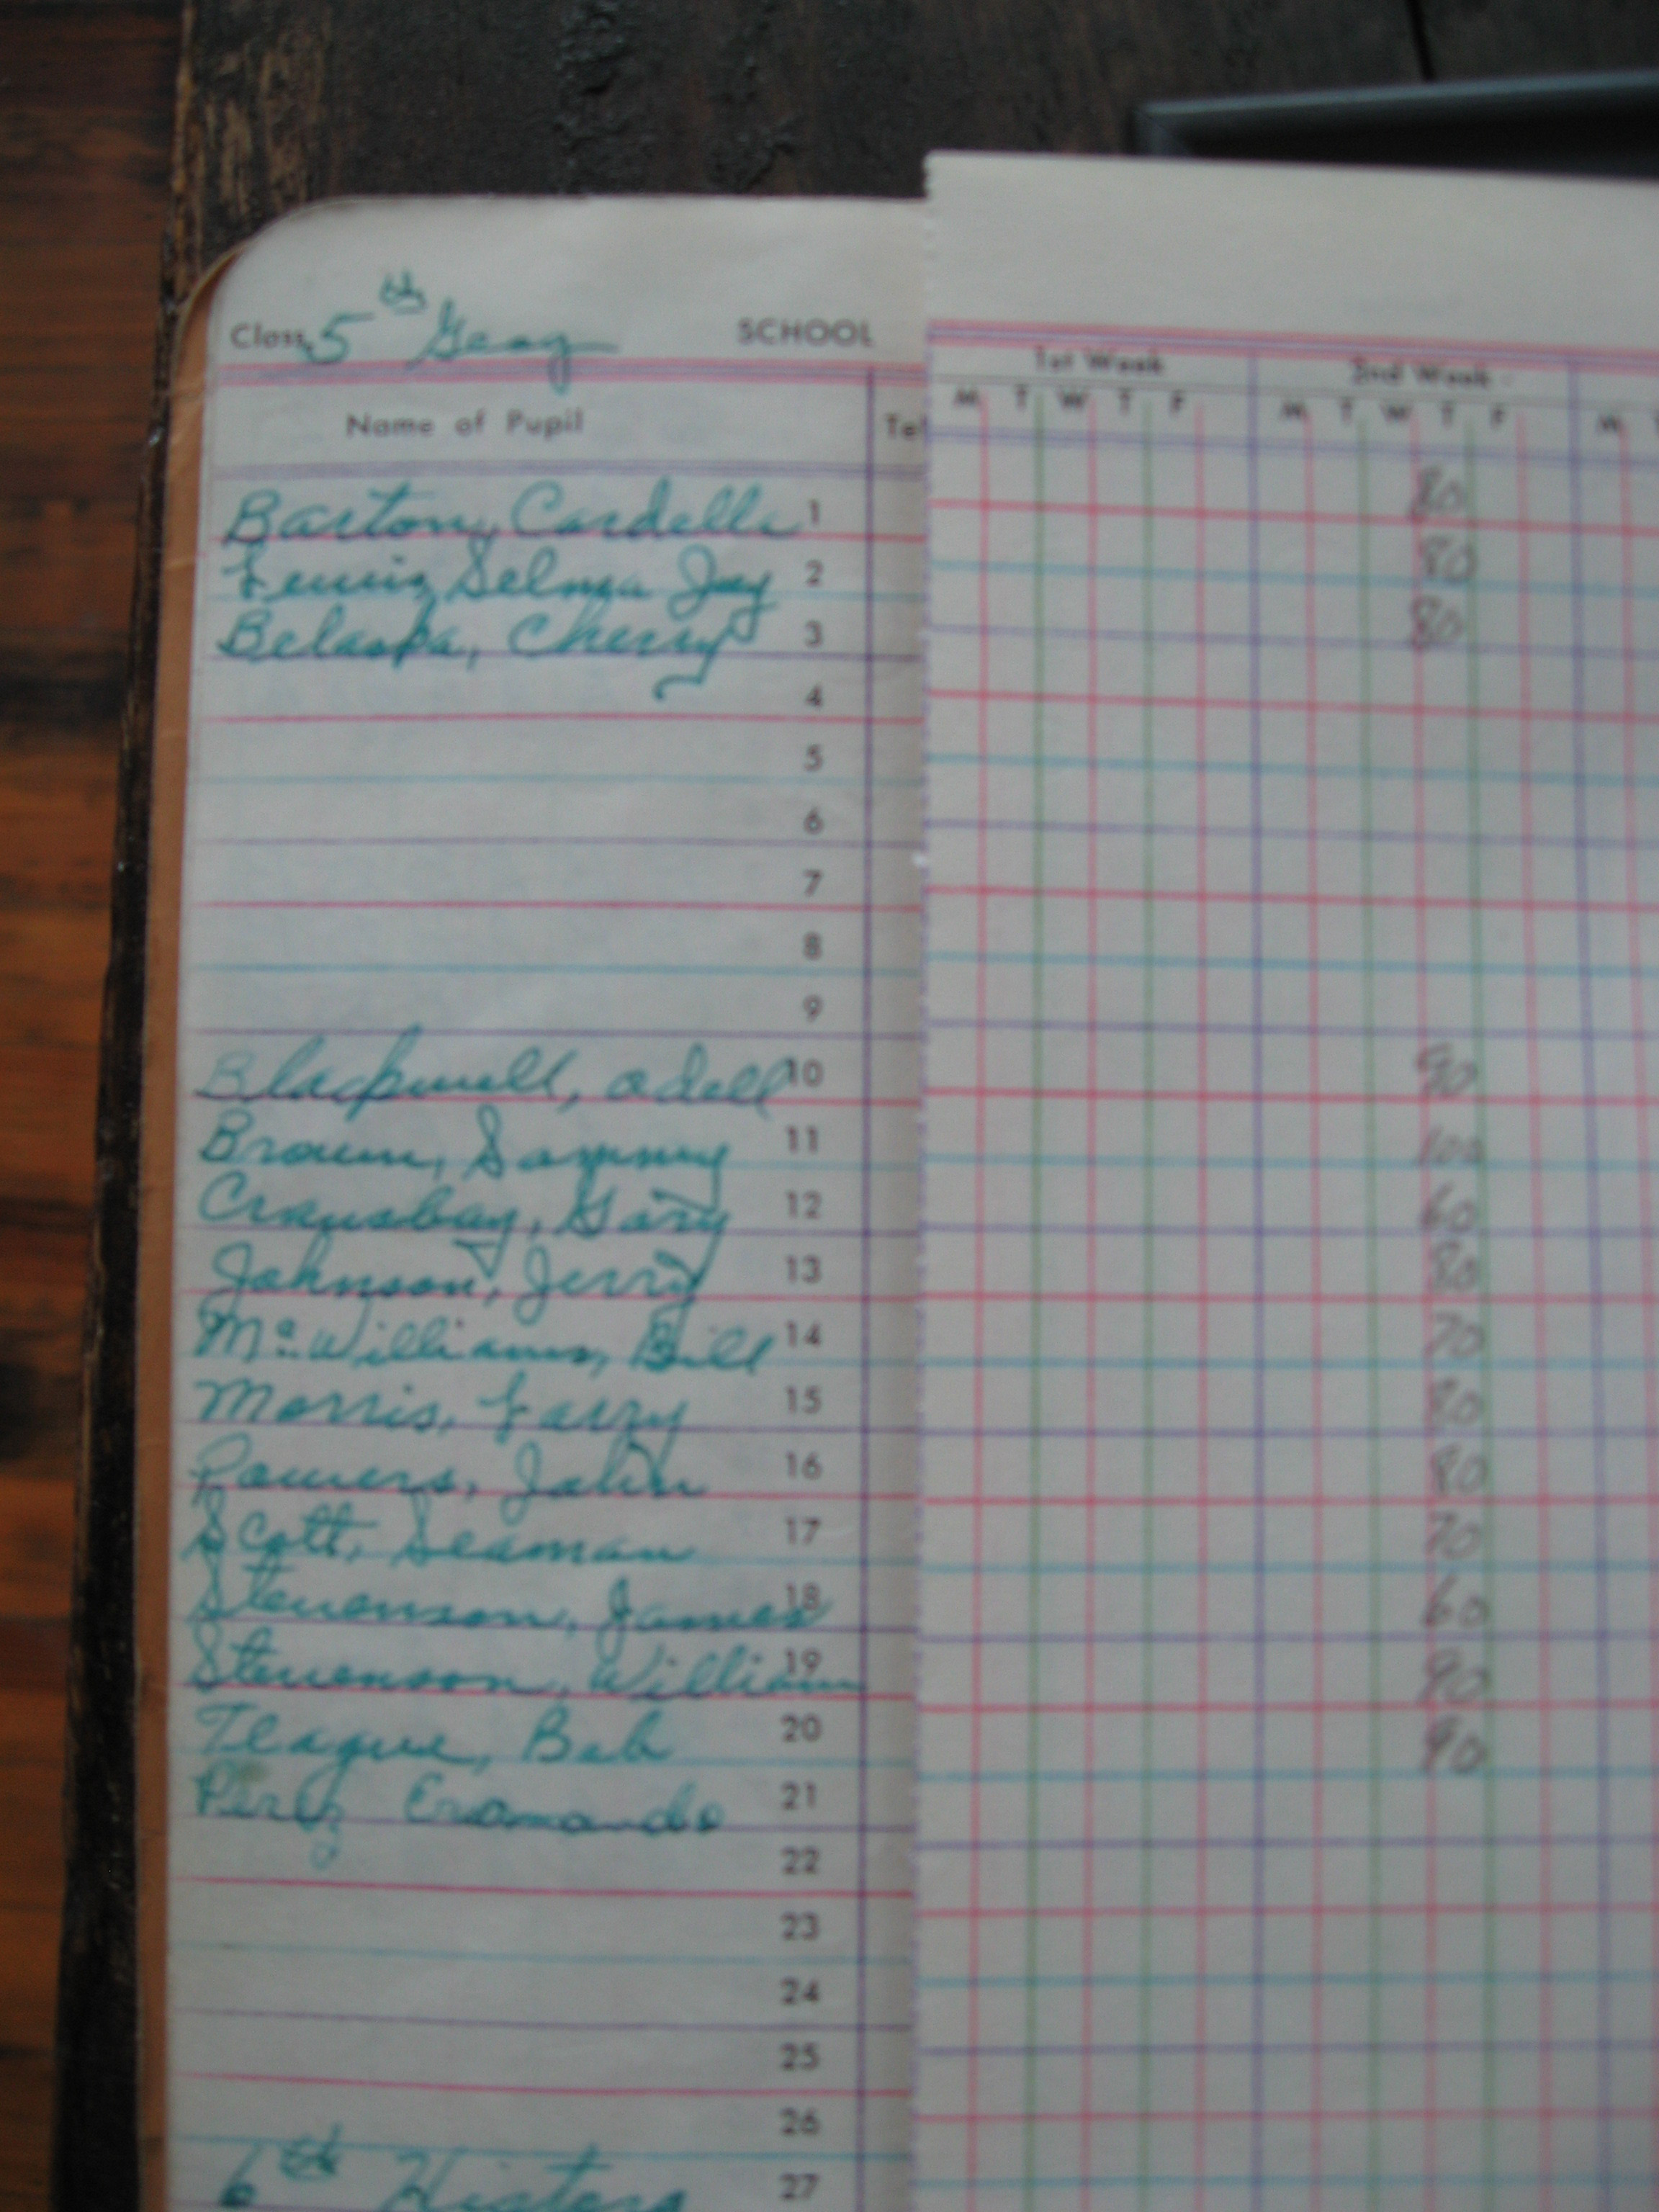 Class 5th Geog SCHOOL
1st Week 2nd Week
Name of Pupil Tel M T W T F M T W T F M
Barton, Cardella 1 80
Lewis, Selma Jay 2 80
Belaska, Cherry 3 80
4
5
6
7
8
9
Blackwell, Odell 10 90
Brown, Sammy 11 100
Gary 12 60
Johnson, Jerry 13 80
McWilliams, Bill 14 70
Morris, Larry 15 80
Powers, John 16 80
Scott, Seaman 17 70
Stevenson, James 18 60
Stevenson, William 19 90
Teague, Bob 20 90
Perez Eramando 21
22
23
24
25
26
6th History 27